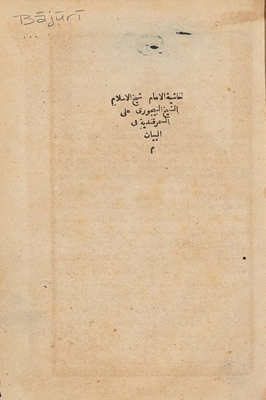 Bājūrī
...
حاشية الامام شيخ الاسلام
الشيخ البيجورى على
السمرقندية فى
البيان
م